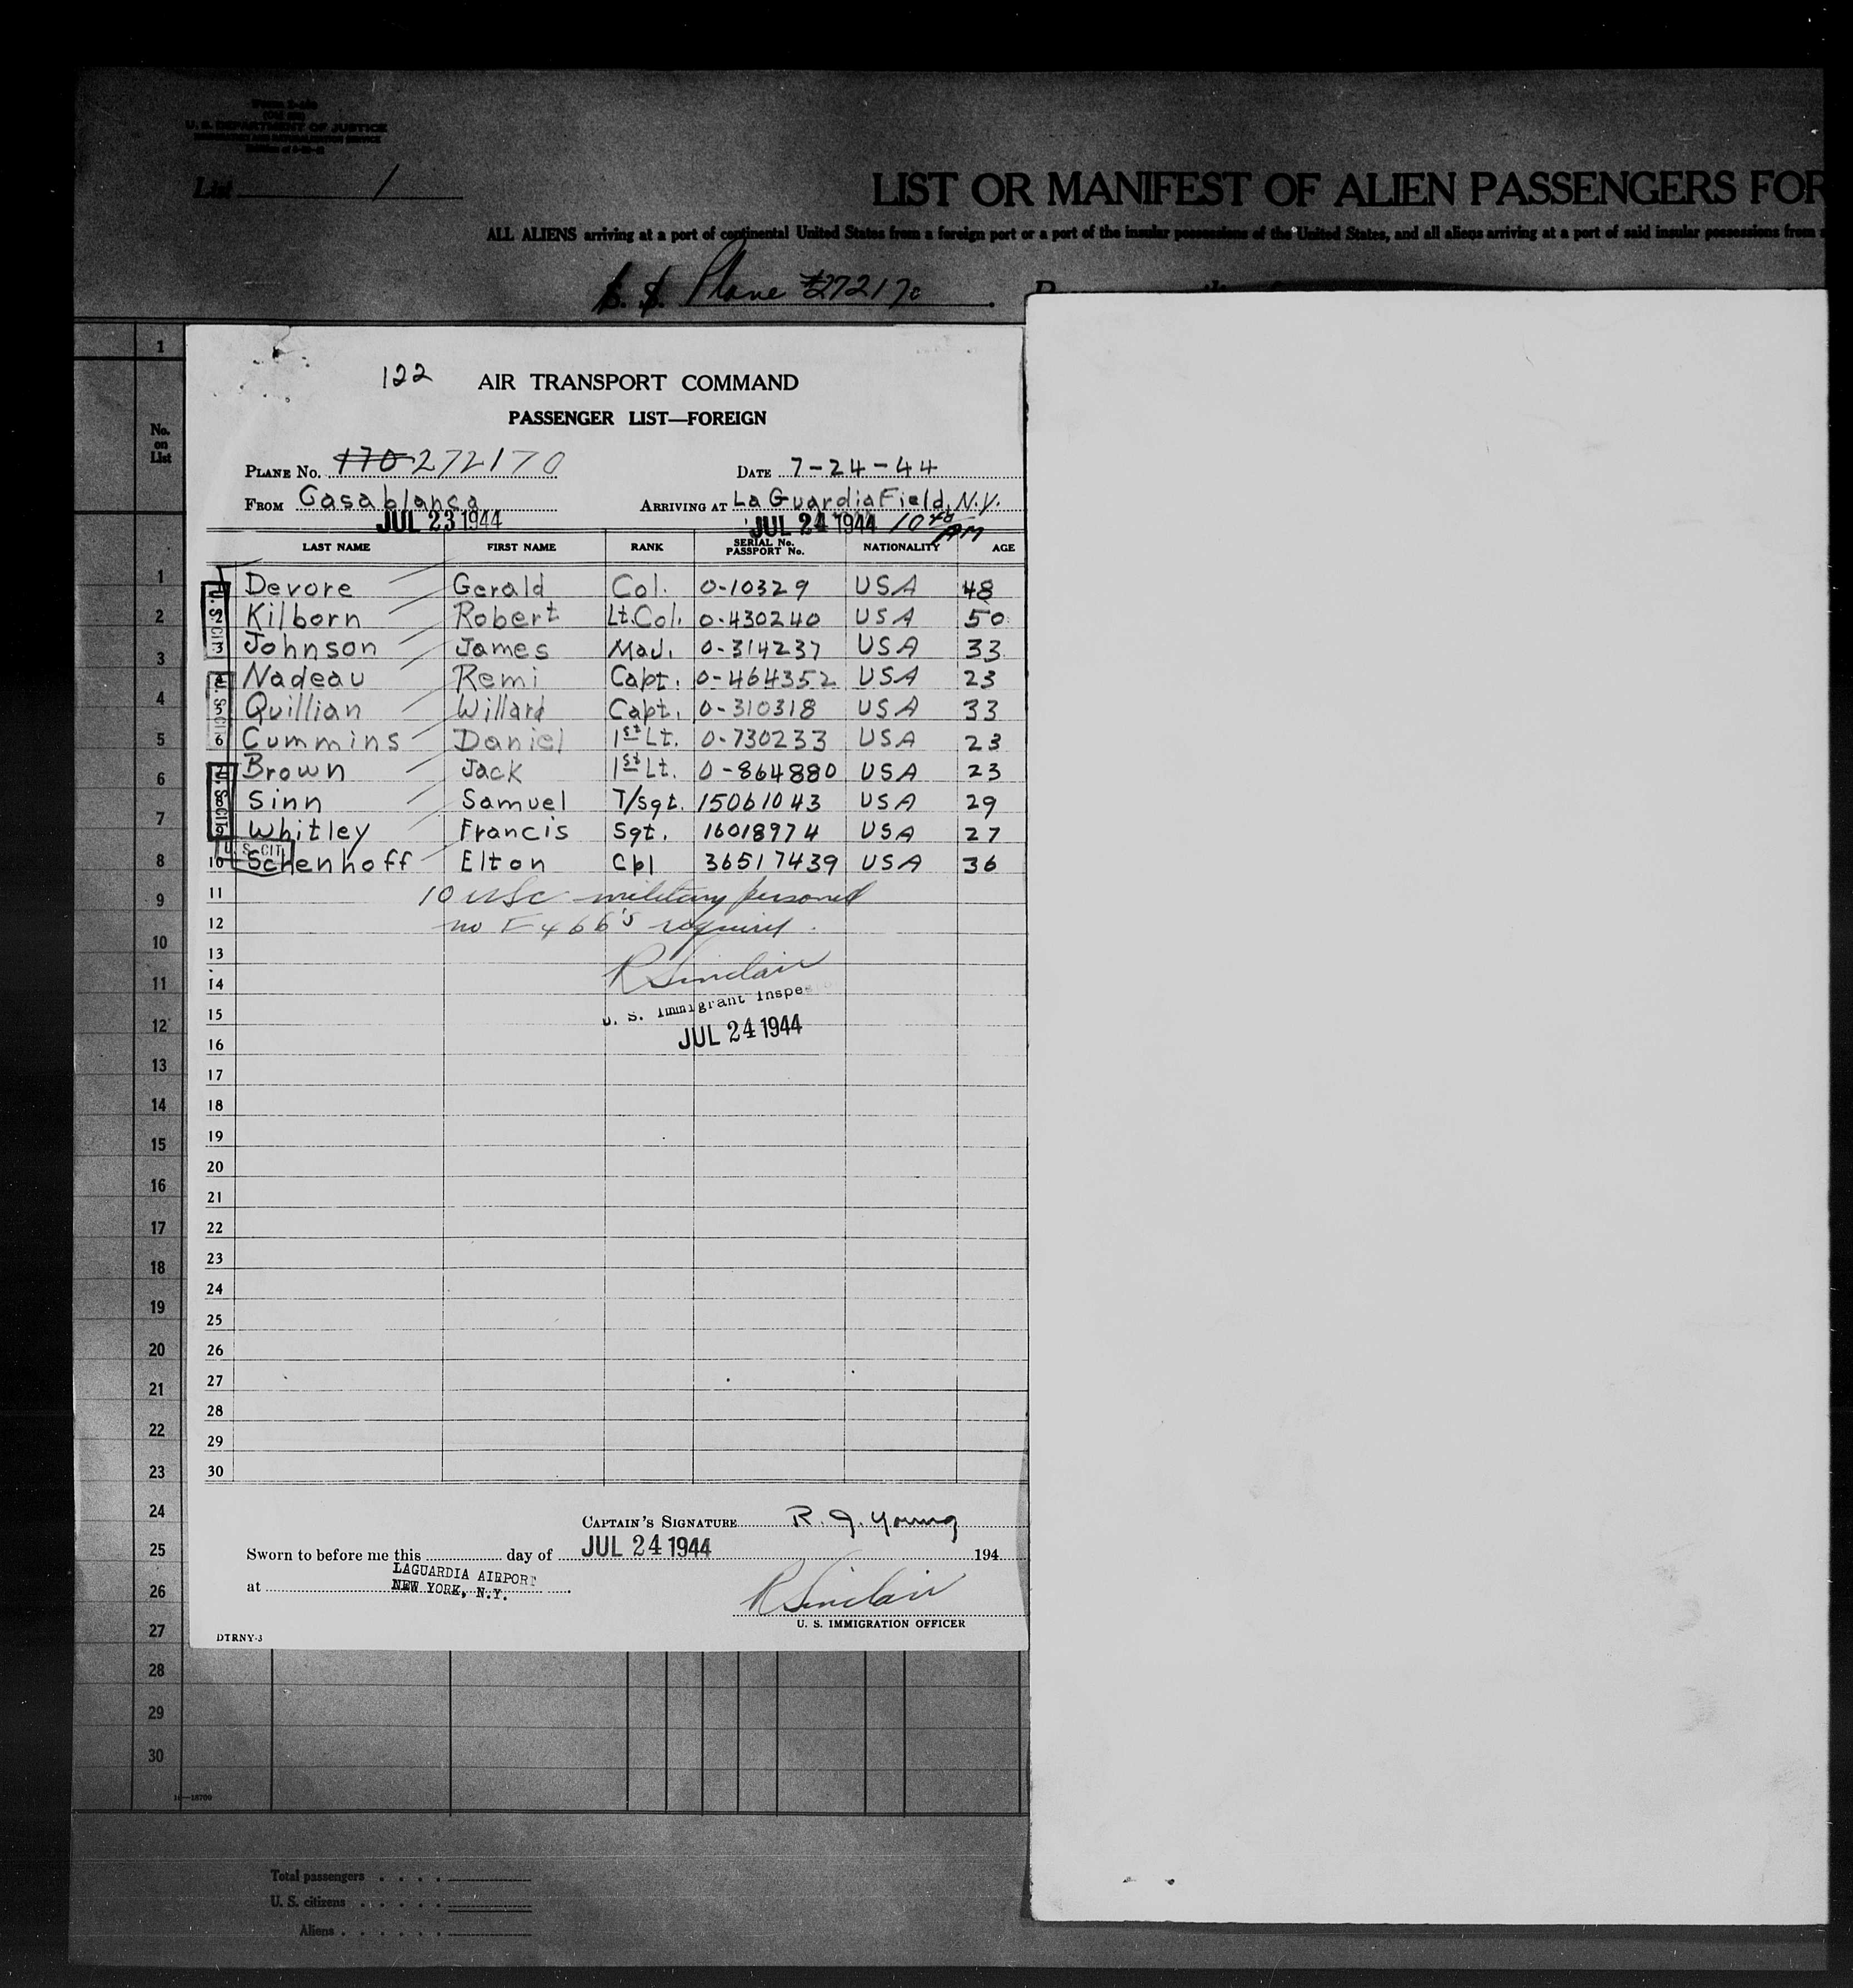 U. S. DEPARTMENT OF JUSTICE
List 1
LIST OR MANIFEST OF ALIEN PASSENGERS FOR
ALL ALIENS arriving at a port of continental United States from a foreign port or a port of the insular possessions of the United States, and all aliens arriving at a port of said insular possessions from
S. S. Plane #272170
1
No. on List
122 AIR TRANSPORT COMMAND
PASSENGER LIST—FOREIGN
PLANE No. 170 272170 DATE 7-24-44
FROM Casablanca ARRIVING AT La Guardia Field, N.Y.
JUL 23 1944 JUL 24 1944 10 40 AM
LAST NAME FIRST NAME RANK SERIAL No. PASSPORT No. NATIONALITY AGE
1 Devore Gerald Col. 0-10329 USA 48
2 Kilborn Robert Lt.Col. 0-430240 USA 50
3 Johnson James Maj. 0-314237 USA 33
4 Nadeau Remi Capt. 0-464352 USA 23
5 Quillian Willard Capt. 0-310318 USA 33
6 Cummins Daniel 1st Lt. 0-730233 USA 23
7 Brown Jack 1st Lt. 0-864880 USA 23
8 Sinn Samuel T/Sgt. 15061043 USA 29
9 Whitley Francis Sgt. 16018974 USA 27
U. S. CIT
10 Schenhoff Elton Cpl 36517439 USA 36
11 10 USC military personel
12 no E466's required.
13
R Sinclair
14
15 U. S. Immigrant Inspe
16 JUL 24 1944
17
18
19
20
21
22
23
24
25
26
27
28
29
30
CAPTAIN'S SIGNATURE R. J. Young
Sworn to before me this day of JUL 24 1944 194
at LAGUARDIA AIRPORT
NEW YORK, N.Y.
R Sinclair
U. S. IMMIGRATION OFFICER
DTRNY-3
1
2
3
4
5
6
7
8
9
10
11
12
13
14
15
16
17
18
19
20
21
22
23
24
25
26
27
28
29
30
16—18700
Total passengers
U. S. citizens
Aliens